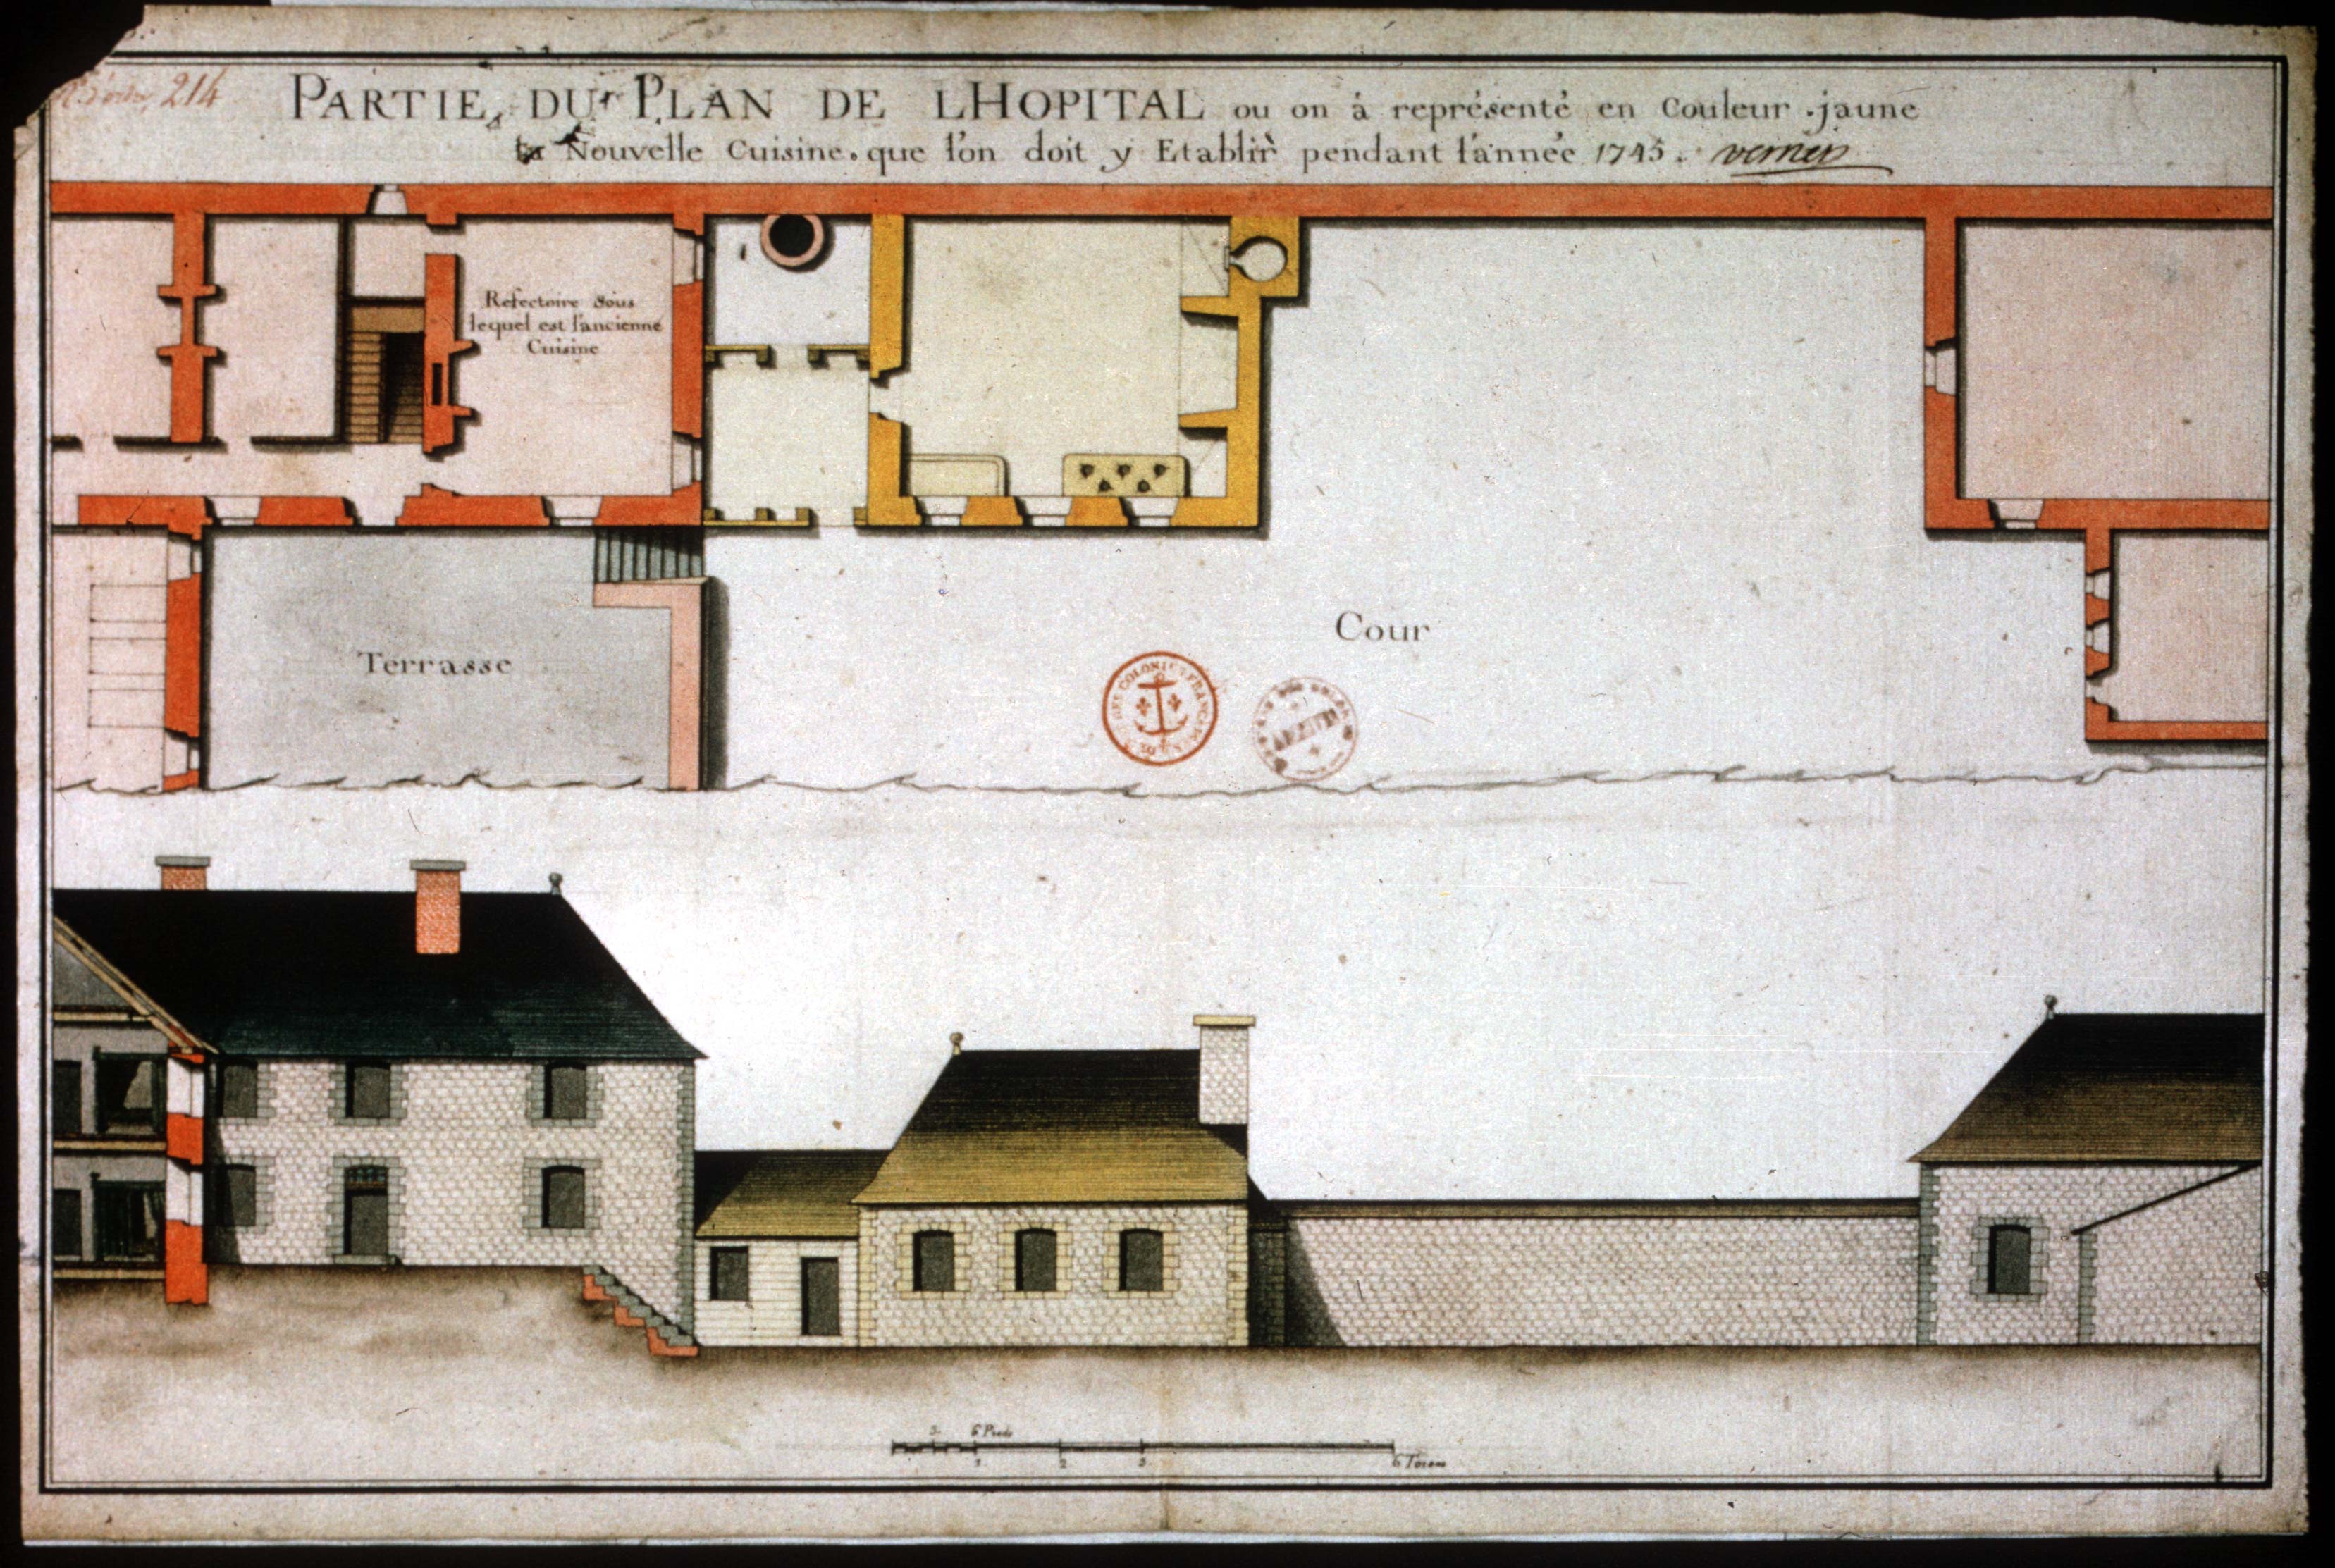 214
PARTIE DU PLAN DE LHOPITAL ou on á représenté en Couleur jaune
la Nouvelle Cuisine que l'on doit y Etablir pendant l'année 1745. verrier
Refectoire Sous
lequel est l'ancienne
Cuisine
Terrasse
Cour
COLONIES FRANC
3. 6 Pieds
1 2 3 6 Toises